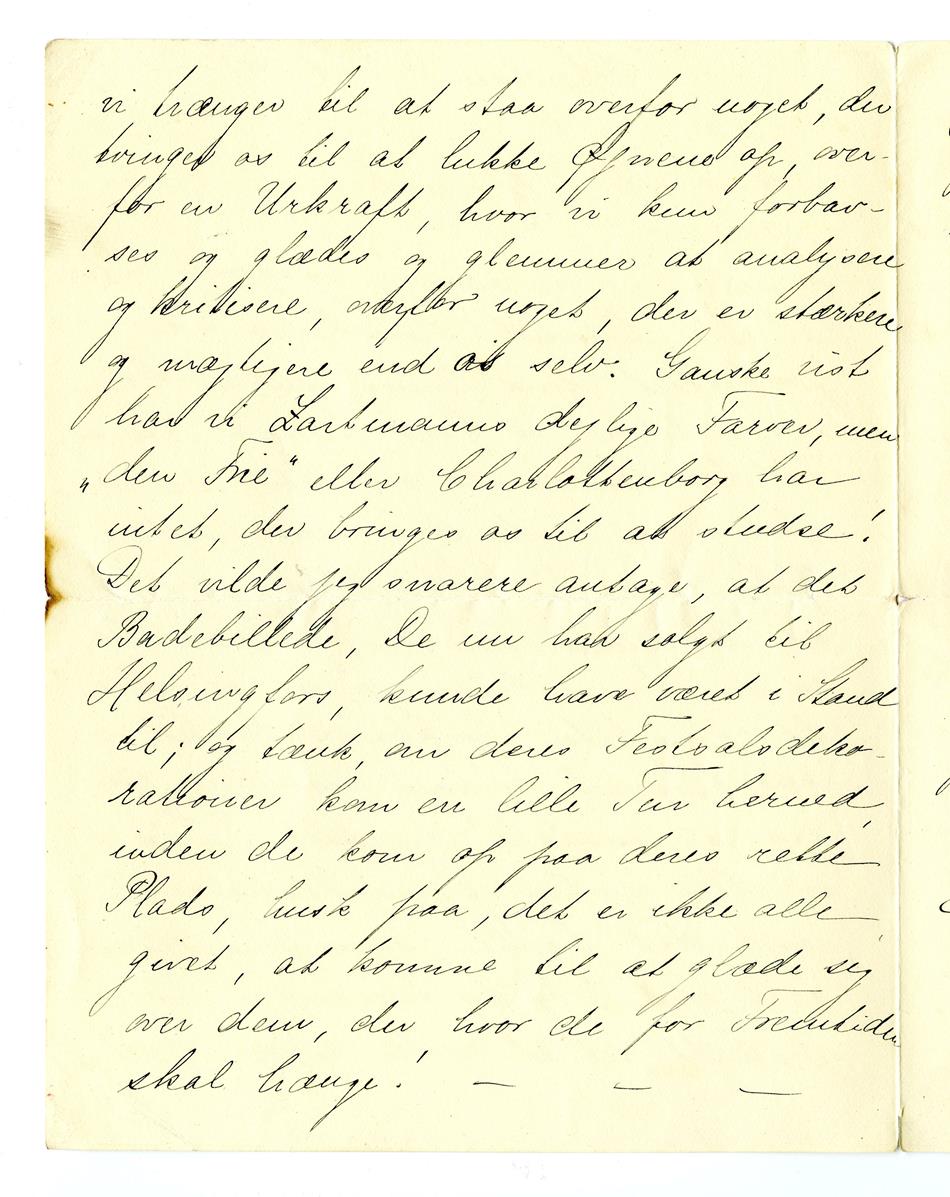 vi trænger til at staa overfor noget, der
tvinger os til at lukke Øjnene op, over-
for en Urkraft, hvor vi kun forbav-
ses og glædes og glemmer at analysere
og kritisere, overfor noget, der er stærkere
og mægtigere end os selv. Ganske vist
har vi Zartmanns dejlige Farver, men
„den Frie“ eller Charlottenborg har
intet, der bringes os til at studse!
Det vilde jeg snarere antage, at det
Badebillede, De nu har solgt til
Helsingfors, kunde have været i Stand
til; og tænk, om deres Festsalsdeko-
rationer kom en lille Tur herned,
inden de kom op paa deres rette
Plads, husk paa, det er ikke alle
givet, at komme til at glæde sig
over dem, der hvor de for Fremtiden
skal hænge! — — —